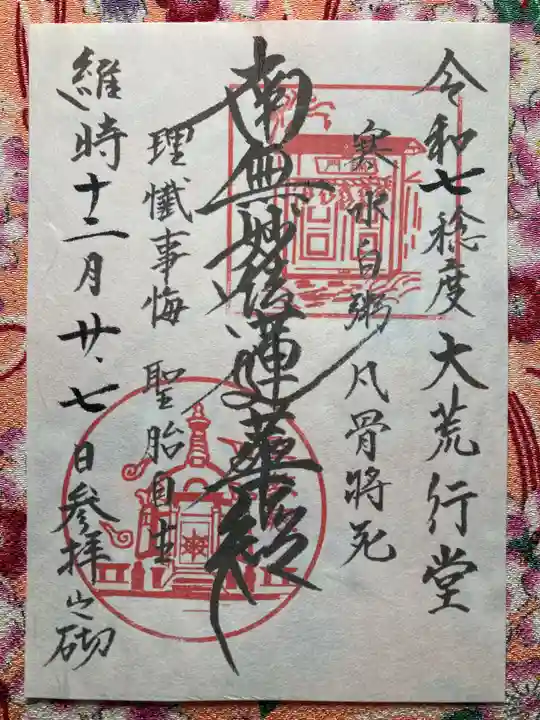 令和七稔度大荒行堂
寒水白粥凡骨将死
南無妙法蓮華経
理懺事悔聖胎自生
維時十二月廿七日参拝之砌